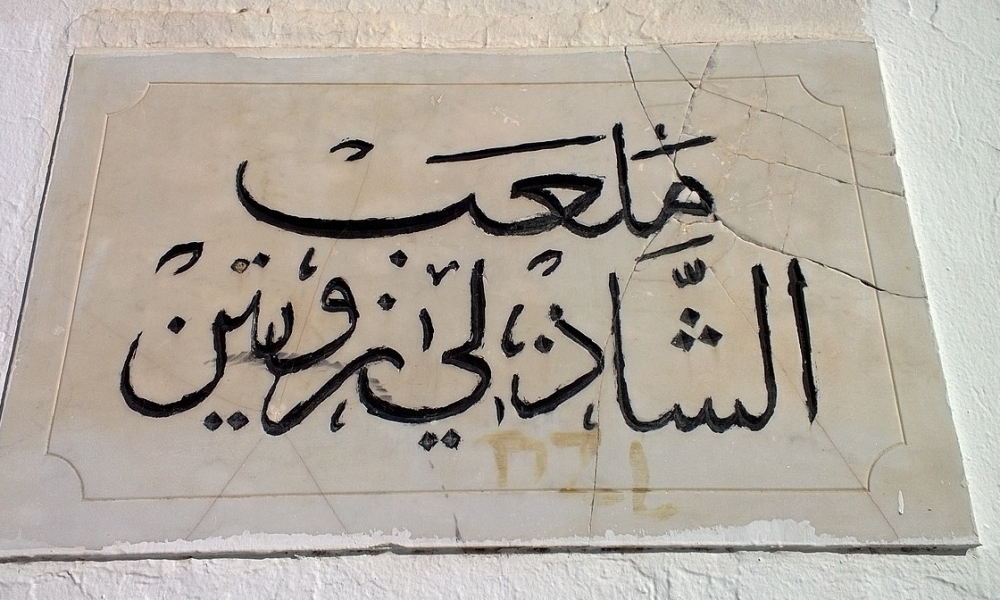 ملعب
الشاذلي زويتن